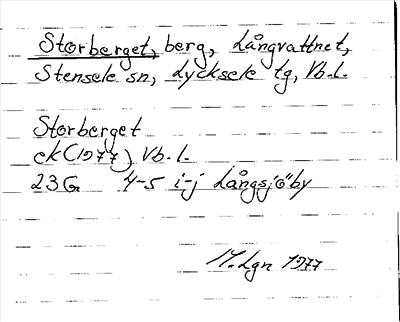 Storberget, berg, Långvattnet,
Stensele sn, Lycksele tg, Vb.l.
Storberget
ek (1977) Vb.l.
23G 4-5 i-j Långsjöby
M.Lgn 1977